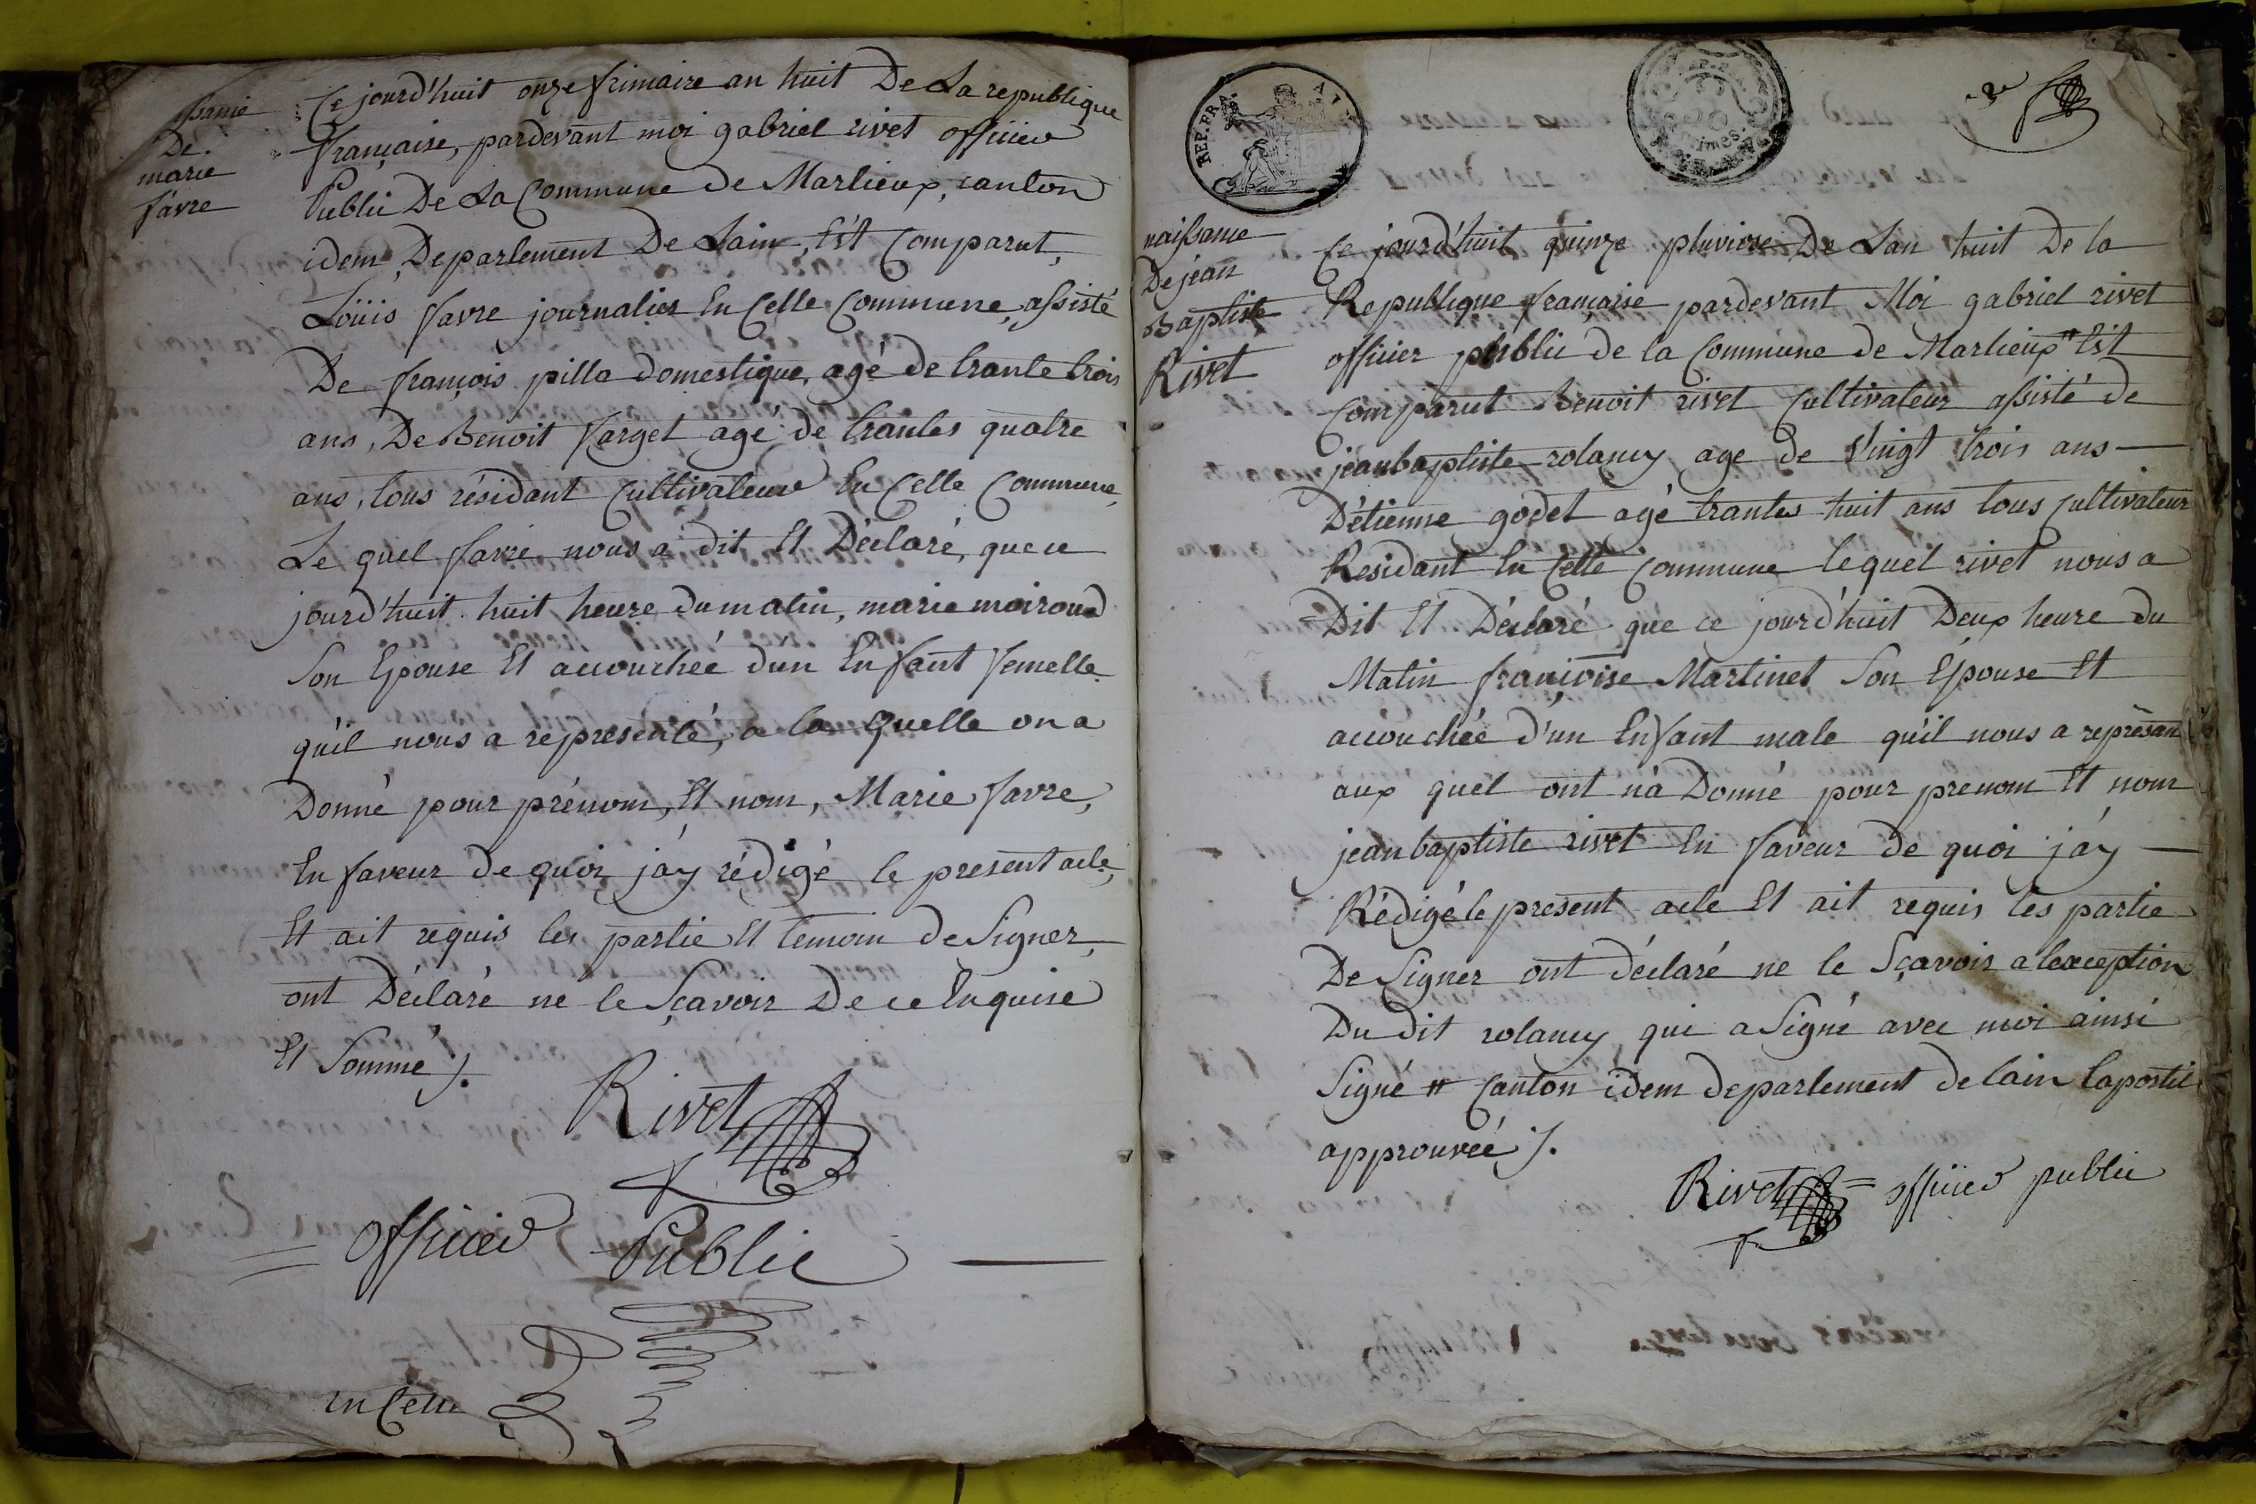 De
marie
favre
Ce jourd'huit onze frimaire an huit De La republique
française, pardevant moi gabriel rivet officier
Public De La Commune de Marlieux, canton
idem Departement De Lain, Est Comparut,
Loüis favre journalier En Celle Commune, assisté
De françois pilla domestique, agé de trante trois
ans, De Benoit farget agé de trantes quatre
ans, tous résidant Cultivateur En Celle Commune,
Le quel favre nous a dit Et Déclaré, que ce
jourd'huit huit heure du matin, marie moiroud
Son Epouse Et accouchéé dun Enfant femelle
qu'il nous a représenté, a la quelle on a
Donné pour prénom, Et nom, Marie favre,
En faveur de quoi j'ay rédigé le present acte,
Et ait requis les partie Et temoin de Signer,
ont Déclaré ne le Sçavoir De ce Enquise
Et Sommé ./.
Rivet
officier Public
En Celle
REP. FRA.
2
naissance
De jean
Baptiste
Rivet
Ce jourd'huit quinze pluviose De Lan huit De la
Republique française pardevant Moi gabriel rivet
officier public de la Commune de Marlieux # Est
Comparut Benoit rivet Cultivateur assisté de
jean baptiste rolamy age de Vingt trois ans
D'étienne godet agé trantes huit ans tous Cultivateur
Residant En Celle Commune lequel rivet nous a
Dit Et Déclaré que ce jourd'huit Deux heure du
Matin françoise Martinet Son Epouse Et
accouchéé d'un Enfant male qu'il nous a représan
aux quel ont n'à Donné pour prenom Et nom
jean baptiste rivet En faveur de quoi j'ay
Rédigé le present acte Et ait requis les partie
De Signer ont déclaré ne le Sçavoir a lexception
Du dit rolamy qui a Signé avec moi ainsi
Signé # Canton idem departement de lain lapostil
approuvéé ./.
Rivet = officier public